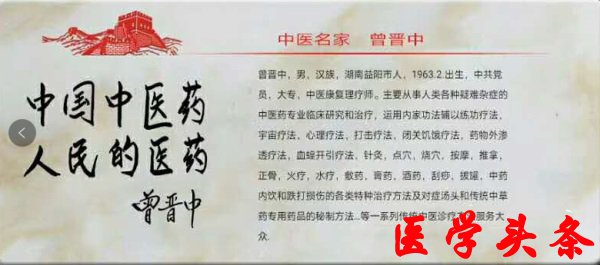 中医名家 曾晋中
中国中医药
人民的医药
曾晋中
曾晋中，男、汉族，湖南益阳市人，1963.2.出生，中共党
员、大专、中医康复理疗师。主要从事人类各种疑难杂症的
中医药专业临床研究和治疗，运用内家功法辅以练功疗法，
宇宙疗法、心理疗法、打击疗法，闭关饥饿疗法，药物外渗
透疗法，血蛭开引疗法、针灸，点穴，烧穴，按摩，推拿，
正骨，火疗，水疗，敷药，膏药，酒药，刮痧，拔罐，中药
内饮和跌打损伤的各类特种治疗方法及对症汤头和传统中草
药专用药品的秘制方法...等一系列传统中医诊疗方
服务大
众.
医学头条